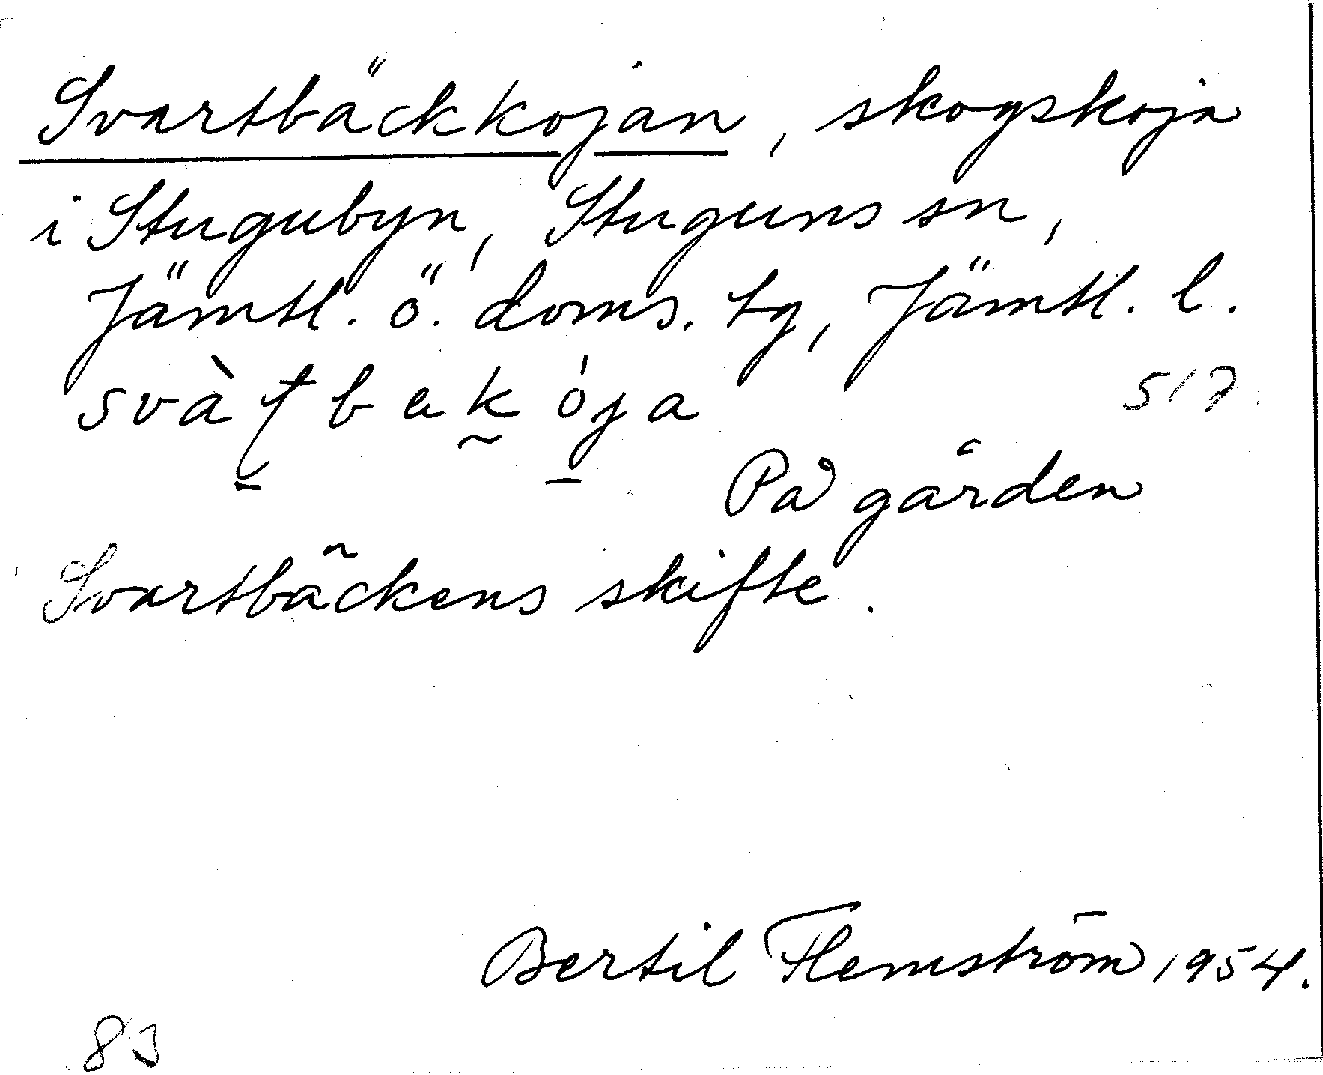 Svartbäckkojan, skogskoja
i Stugubyn, Stuguns sn,
Jämtl. ö. doms. tg, Jämtl. l.
517.
På gården
Svartbäckens skifte.
Bertil Flemström 1954.
83